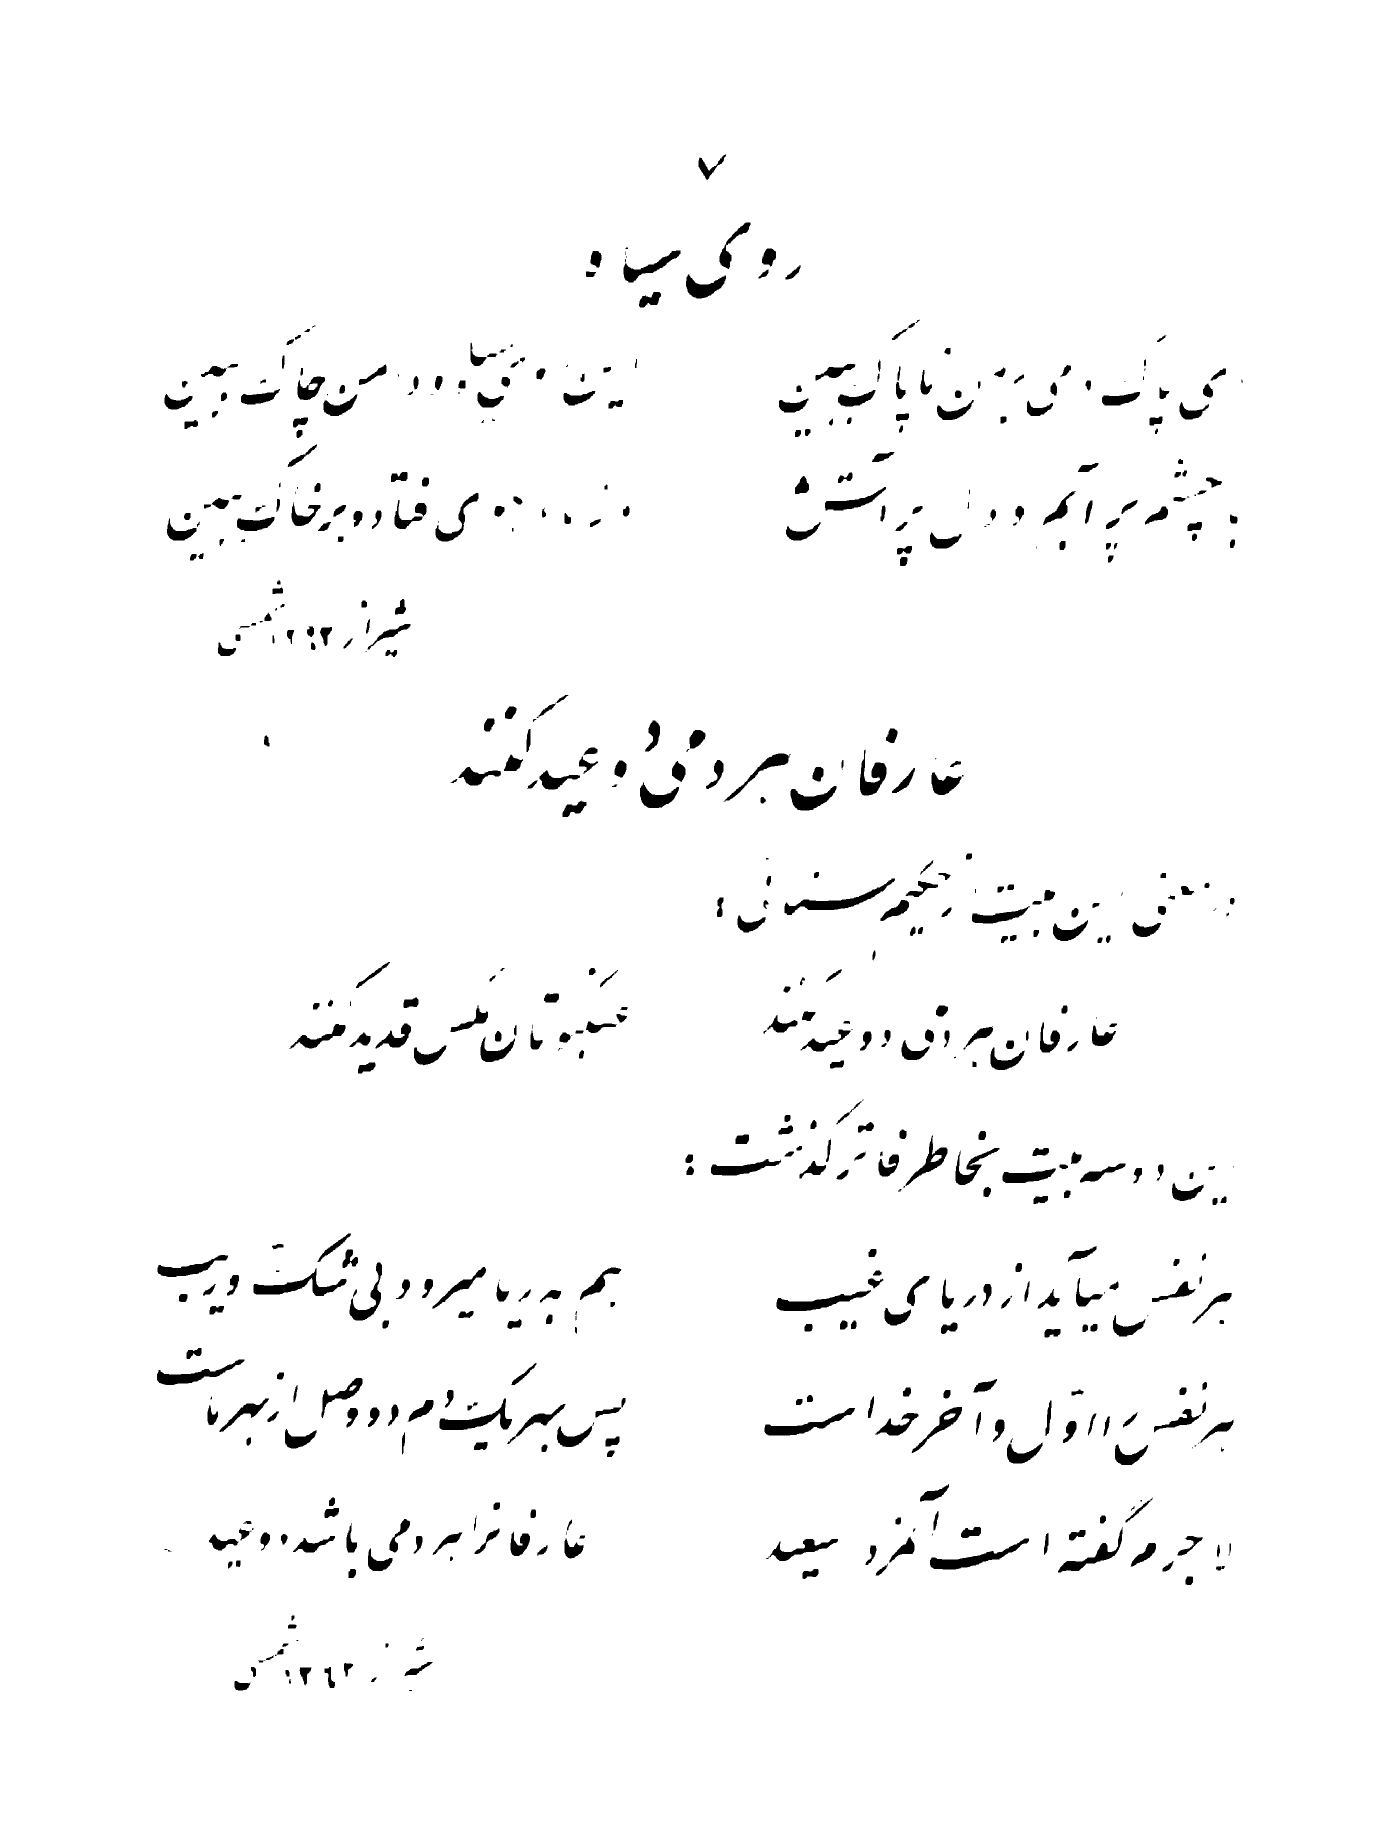 ۷
روی سیاه
ای پاک دمی بمن ناپاک ببین این روی سیاه و دامن چاک ببین
با چشم پر آبم و دل پر آتش فتاده بر خاک ببین
شیراز شمسی
عارفان هر دمی دو عید کنند
در معنی این بیت از حکیم سنائی :
عارفان هر دمی دو عید کنند عنکبوتان مگس قدید کنند
این دو سه بیت بخاطر فاتر گذشت :
هر نفس میآید از دریای غیب هم به دریا میرود بی شک و ریب
هر نفس را اوّل و آخر خداست پس بهر یک دم دو وصل از بهر ماست
لاجرم گفته است آنمرد سعید عارفانرا هر دمی باشد دو عید
شیراز ۱۳۶۲ شمسی